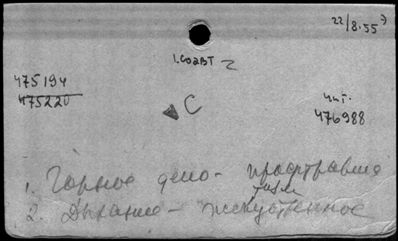 22/8.55
1.СОДВТ 2
475194
475220
С
чит.
476988
1. Горное дело -
2. Дыхание - искусственное